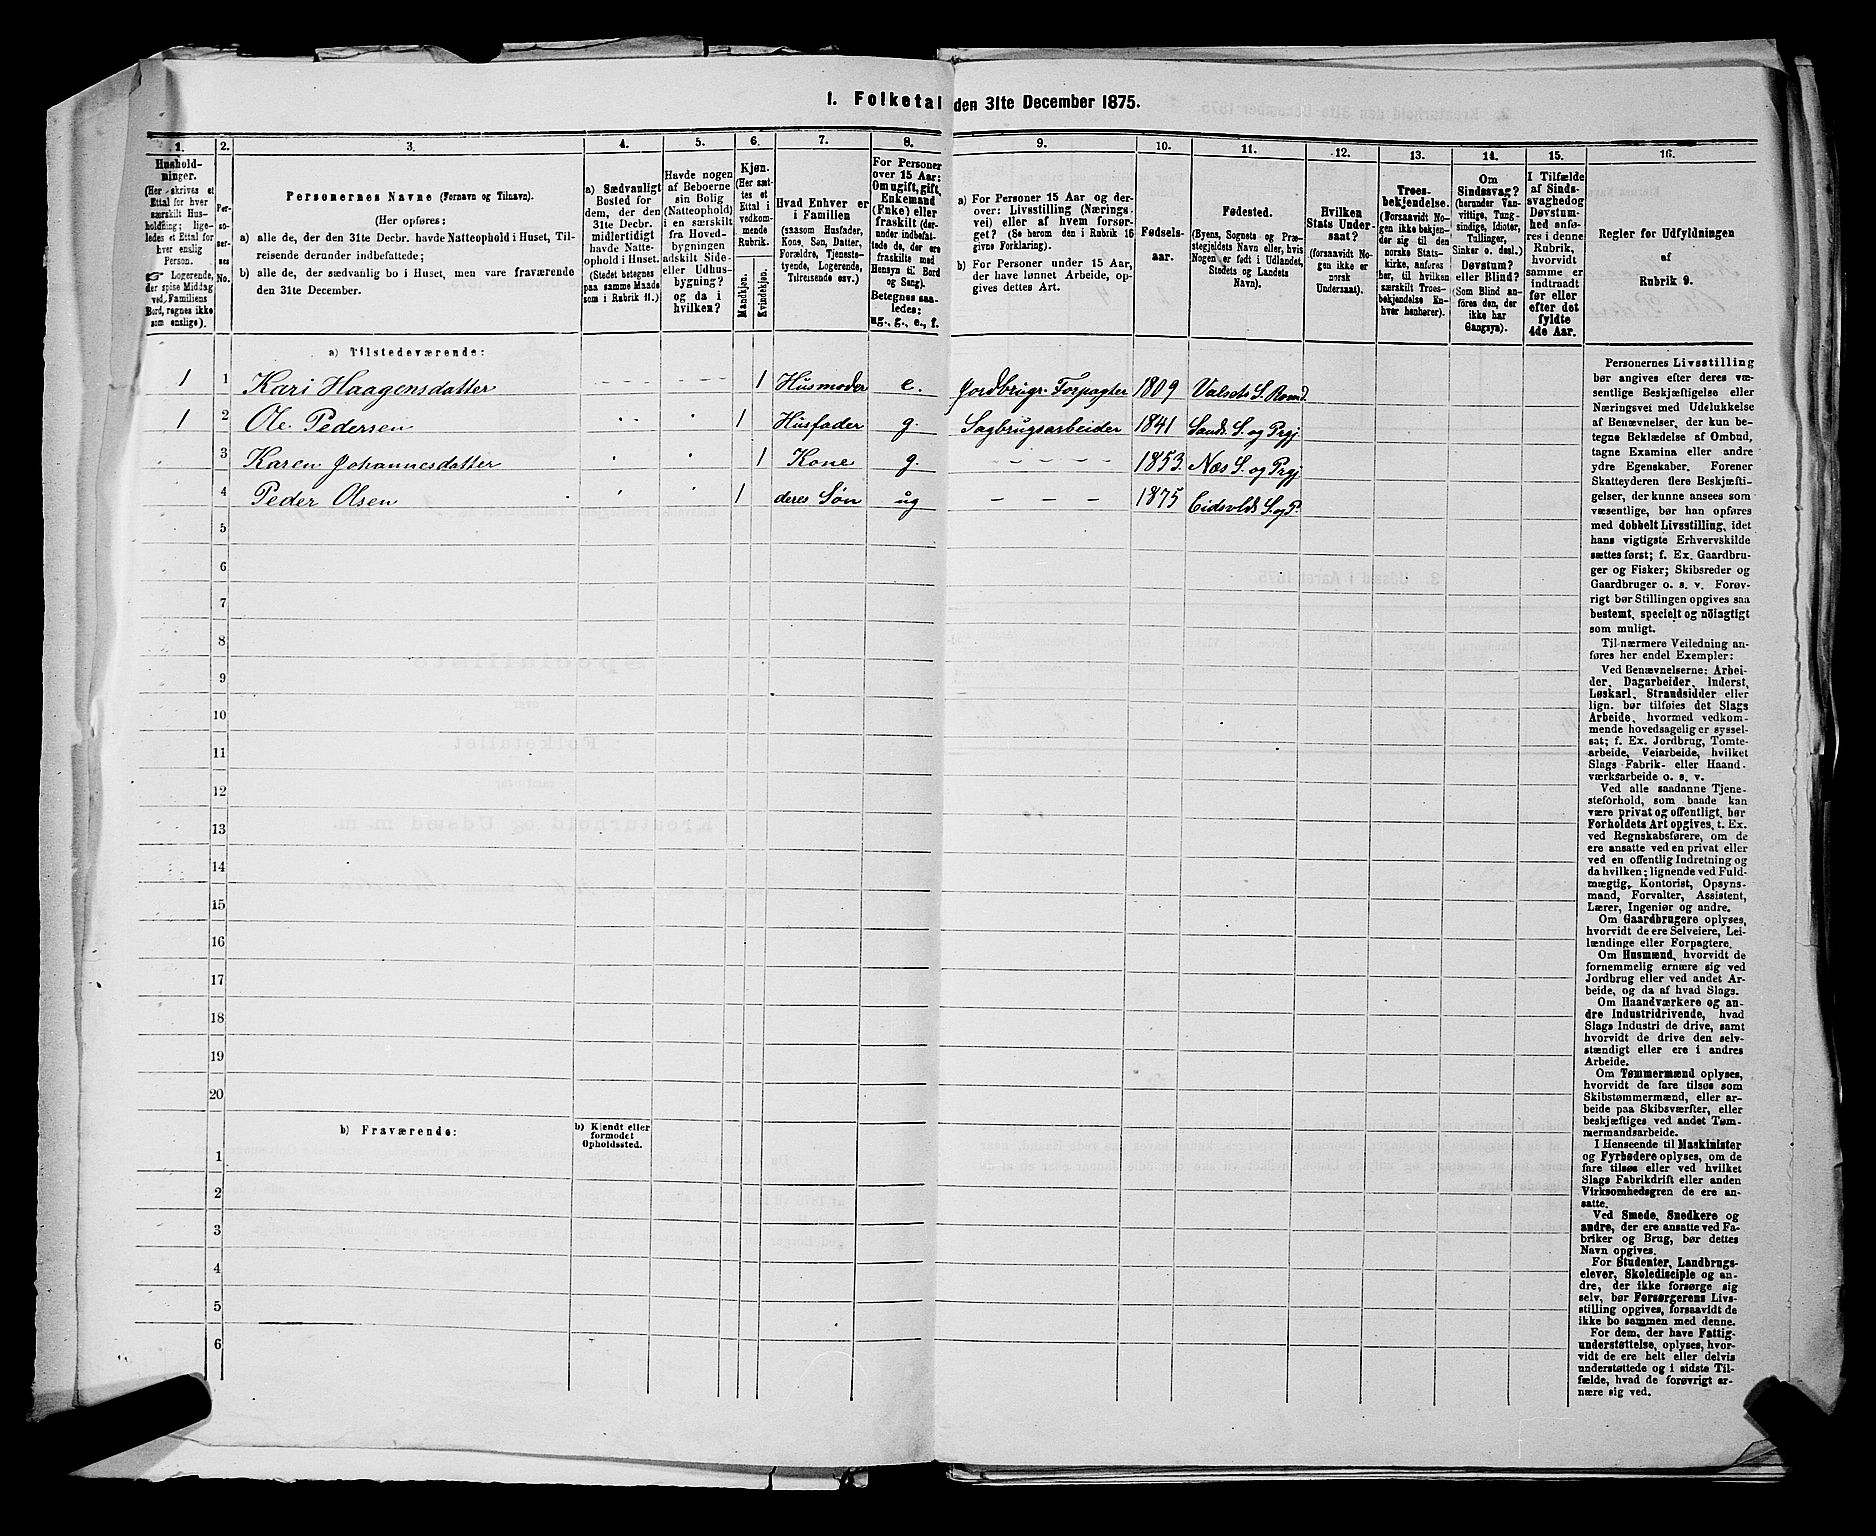 1. Folketal den 31te December 1875.
1. 2. 3. 4. 5. 6. 7. 8. 9. 10. 11. 12. 13. 14. 15. 16.
Hushold-
ninger.
(Her skrives et
Ettal for hver
særskilt Hus-
holdning; lige-
ledes et Ettal for
hver enslig
Person.
☞ Logerende,
der spise Middag
ved Familiens
Bord, regnes ikke
som enslige).
Per-
so-
ner-
nes
No.
Personernes Navne (Fornavn og Tilnavn).
(Her opføres:
a) alle de, der den 31te Decbr. havde Natteophold i Huset, Til-
reisende derunder indbefattede;
b) alle de, der sædvanlig bo i Huset, men vare fraværende
den 31te December.
a) Sædvanligt
Bosted for
dem, der den
31te Decbr.
midlertidigt
havde Natte-
ophold i Huset.
(Stedet betegnes
paa samme Maade
som i Rubrik 11.)
Havde nogen
af Beboerne
sin Bolig
(Natteophold)
i en særskilt
fra Hoved-
bygningen
adskilt Side-
eller Udhus-
bygning?
og da i
hvilken?
Kjøn.
(Her sæt-
tes et
Ettal i
vedkom-
mende
Rubrik.
Mandkjøn.
Kvindekjøn.
Hvad Enhver er
i Familien
(saasom Husfader,
Kone, Søn, Datter,
Forældre, Tjeneste-
tyende, Logerende,
Tilreisende osv.)
For Personer
over 15 Aar:
Om ugift, gift,
Enkemand
(Enke) eller
fraskilt (der-
under indbefat-
tede de, der ere
fraskilte med
Hensyn til Bord
og Seng).
Betegnes saa-
ledes:
ug., g., e., f.
a) For Personer 15 Aar og der-
over: Livsstilling (Nærings-
vei) eller af hvem forsør-
get? (Se herom den i Rubrik 16
givne Forklaring).
b) For Personer under 15 Aar,
der have lønnet Arbeide, op-
gives dettes Art.
Fødsels-
aar.
Fødested.
(Byens, Sognets og Præ-
stegjeldets Navn eller, hvis
Nogen er født i Udlandet,
Stedets og Landets
Navn).
Hvilken
Stats Under-
saat?
(forsaavidt No-
gen ikke er
norsk
Undersaat).
Troes-
bekjendelse.
(Forsaavidt No-
gen ikke bekjen-
der sig til den
norske Stats-
kirke, anføres
her, til hvilken
særskilt Troes-
bekjendelse En-
hver henhører).
Om
Sindssvag?
(herunder Van-
vittige, Tung-
sindige, Idioter,
Tullinger,
Sinker o. desl.)
Døvstum?
eller Blind?
(Som Blind an-
føres den, der
ikke har
Gangsyn).
I Tilfælde
af Sinds-
svaghed og
Døvstum-
hed anfø-
res i denne
Rubrik,
hvorvidt
samme er
indtraadt
før eller
efter det
fyldte
4de Aar.
Regler for Udfyldningen
af
Rubrik 9.
a) Tilstedeværende:
1 1 Kari Haagensdatter - - - - - 1 Husmoder e. Jordbrugs-Forpagter 1809 Valset S. Romd
1 2 Ole Pedersen " " 1 Husfader g. Sagbrugsarbeider 1841 Sands S. og Prgj
3 Karen Johannesdatter " " 1 Kone g. - - - - 1853. Næs S. og Prgj
4 Peder Olsen " " 1 deres Søn ug - - - 1875 Eidsvolds S. og P.
5
6
7
8
9
10
11
12
13
14
15
16
17
18
19
20
b) Fraværende:
b) Kjendt eller
formodet
Opholdssted.
1
2
3
4
5
6
Personernes Livsstilling
bør angives efter deres væ-
sentlige Beskjæftigelse eller
Næringsvei med Udelukkelse
af Benævnelser, der kun be-
tegne Beklædelse af Ombud,
tagne Examina eller andre
ydre Egenskaber. Forener
Skatteyderen flere Beskjæfti-
gelser, der kunne ansees som
væsentlige, bør han opføres
med dobbelt Livsstilling, idet
hans vigtigste Erhvervskilde
sættes først; f. Ex. Gaardbru-
ger og Fisker; Skibsreder og
Gaardbruger o. s. v. Forøv-
rigt bør Stillingen opgives saa
bestemt, specielt og nöiagtigt
som muligt.
Til nærmere Veiledning an-
føres her endel Exempler:
Ved Benævnelserne: Arbei-
der, Dagarbeider, Inderst,
Løskarl, Strandsidder eller
lign. bør tilføies det Slags
Arbeide, hvormed vedkom-
mende hovedsagelig er syssel-
sat; f. Ex. Jordbrug, Tomte-
arbeide, Veiarbeide, hvilket
Slags Fabrik- eller Haand-
værksarbeide o. s. v.
Ved alle saadanne Tjene-
steforhold, som baade kan
være privat og offentligt, bør
Forholdets Art opgives, t. Ex.
ved Regnskabsførere, om de
ere ansatte ved en privat eller
ved en offentlig Indretning og
da hvilken; lignende ved Fuld-
mægtig, Kontorist, Opsyns-
mand, Forvalter, Assistent,
Lærer, Ingeniør og andre.
Om Gaardbrugere oplyses,
hvorvidt de ere Selveiere, Lei-
lændinge eller Forpagtere.
Om Husmænd, hvorvidt de
fornemmelig ernære sig ved
Jordbrug eller ved andet Ar-
beide, og da af hvad Slags.
Om Haandværkere og an-
dre Industridrivende, hvad
Slags Industri de drive, samt
hvorvidt de drive den selv-
stændigt eller ere i andres
Arbeide.
Om Tømmermænd oplyses,
hvorvidt de fare tilsøs som
Skibstømmermænd, eller ar-
beide paa Skibsværfter, eller
beskjæftiges ved andet Tøm-
mermandsarbeide.
I Henseende til Maskinister
og Fyrbødere oplyses, om de
fare tilsøs eller ved hvilket
Slags Fabrikdrift eller anden
Virksomhedsgren de ere an-
satte.
Ved Smede, Snedkere og
andre, der ere ansatte ved Fa-
briker og Brug, bør dettes
Navn opgives.
For Studenter, Landbrugs-
elever, Skoledisciple og an-
dre, der ikke forsørge sig
selv, bør Forsørgerens Livs-
stilling opgives, forsaavidt de
ikke bo sammen med denne.
For dem, der have Fattig-
understøttelse, oplyses, hvor-
vidt de ere helt eller delvis
understøttede og i sidste Til-
fælde, hvad de forøvrigt er-
nære sig ved.